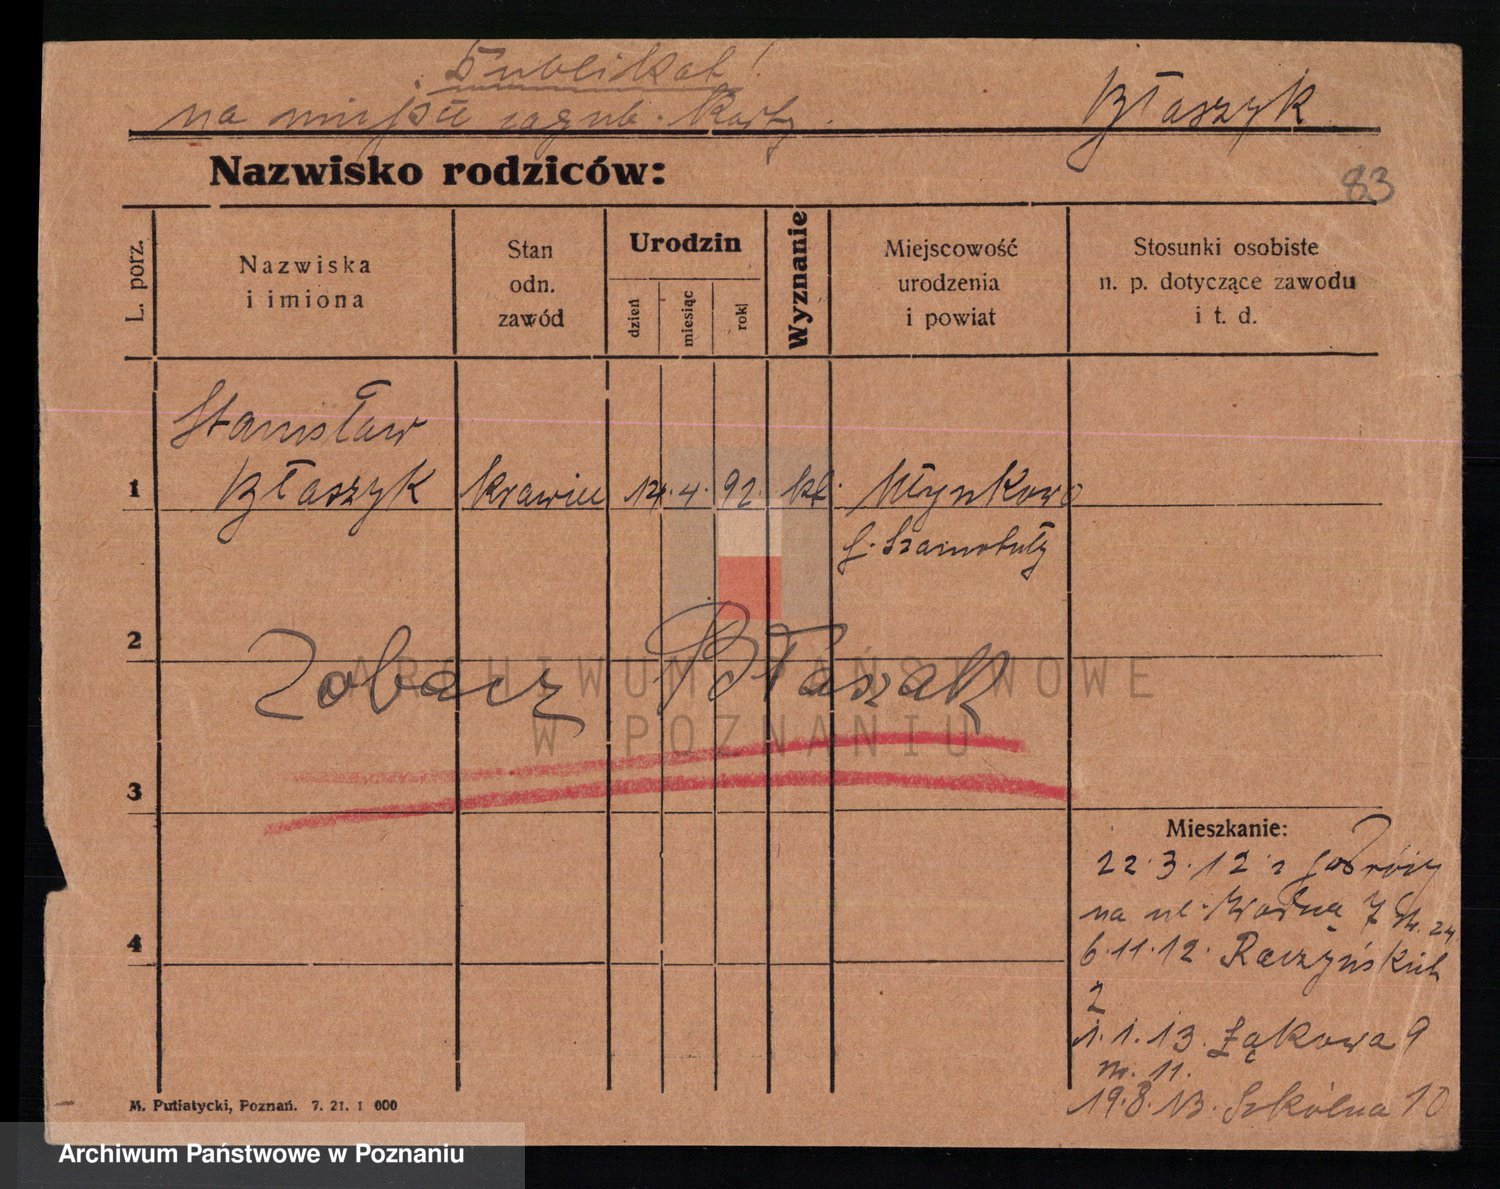 Dublikat!
na miejsce zagub. Karty.
Błaszyk
Nazwisko rodziców:
83
L. porz.
Nazwiska
i imiona
Stan
odn.
zawód
Urodzin
dzień
miesiąc
rok
Wyznanie
Miejscowość
urodzenia
i powiat
Stosunki osobiste
n. p. dotyczące zawodu
i t. d.
Stanisław
1 Błaszyk krawiec 14. 4. 92. kt. Młynkowo
p. Szamotuły
2
Zobacz Błaszak
ARCHIWUM PAŃSTWOWE
W POZNANIU
3
Mieszkanie:
22.3.12 z
na ul. Wodną 7 m. 24
4
6.11.12. Raczyńskich
2
1.1.13. Łąkowa 9
m. 11.
19.8.13. Szkólna 10
M. Putiatycki, Poznań. 7. 21. 1 000
Archiwum Państwowe w Poznaniu